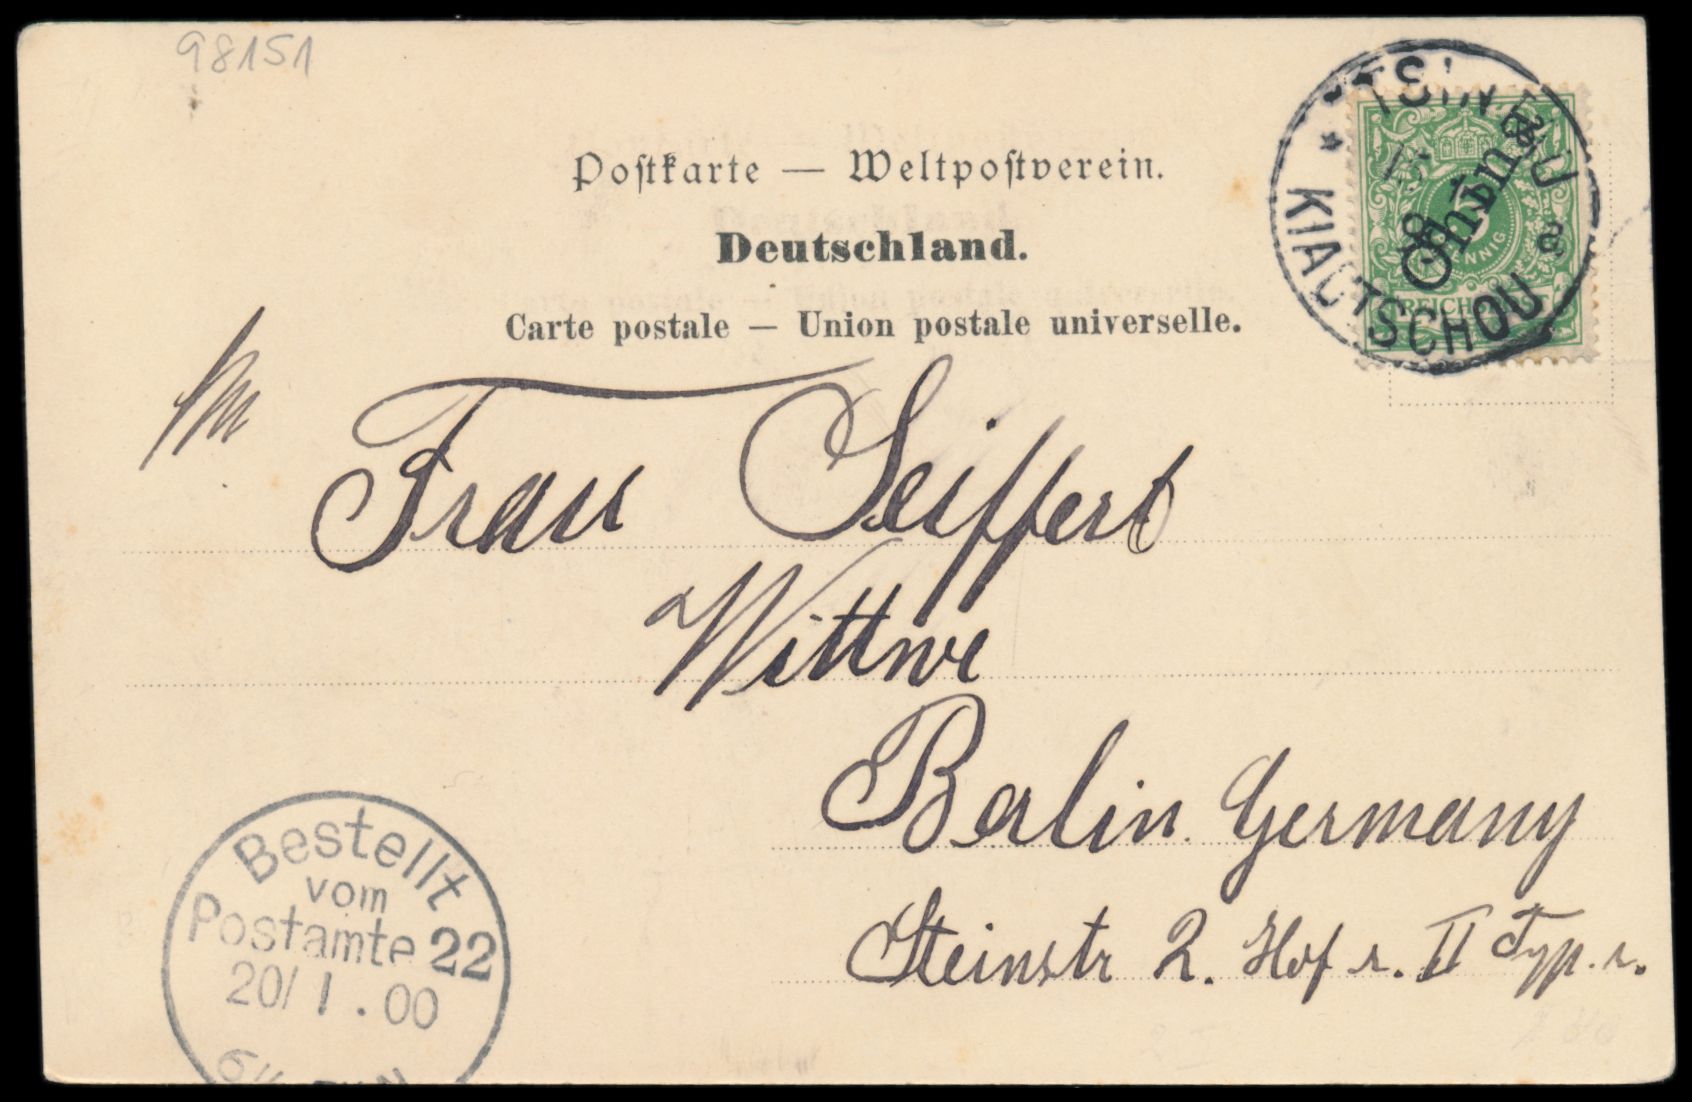 98151
Postkarte — Weltpostverein.
Deutschland.
Carte postale — Union postale universelle.
TSINTAU
KIAUTSCHOU
a
China
PFENNIG
REICHSPOST
An
Frau Seiffert
Wittwe
Berlin. Germany
Steinstr 2. Hof r. II Typ. r.
Bestellt
vom
Postamte 22
20/ 1. 00